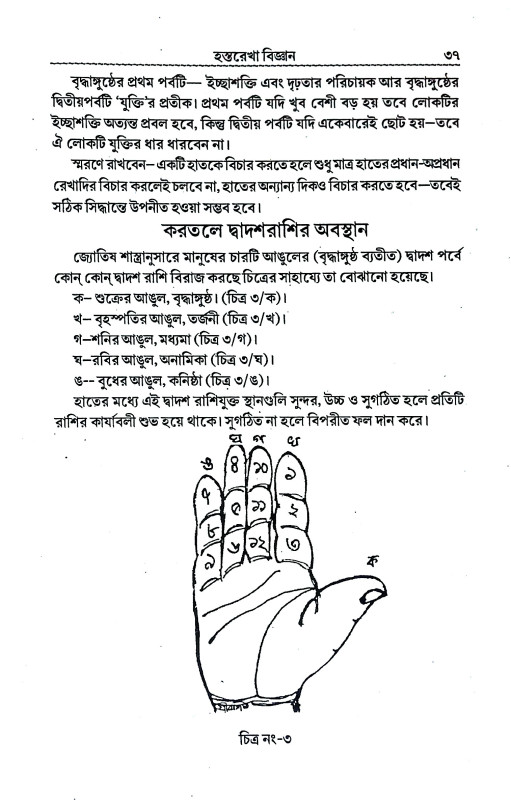 হস্তরেখা বিজ্ঞান ৩৭
বৃদ্ধাঙ্গুষ্ঠের প্রথম পর্বটি— ইচ্ছাশক্তি এবং দৃঢ়তার পরিচায়ক আর বৃদ্ধাঙ্গুষ্ঠের
দ্বিতীয়পর্বটি ‘যুক্তি’র প্রতীক। প্রথম পর্বটি যদি খুব বেশী বড় হয় তবে লোকটির
ইচ্ছাশক্তি অত্যন্ত প্রবল হবে, কিন্তু দ্বিতীয় পর্বটি যদি একেবারেই ছোট হয়—তবে
ঐ লোকটি যুক্তির ধার ধারবেন না।
স্মরণে রাখবেন– একটি হাতকে বিচার করতে হলে শুধু মাত্র হাতের প্রধান-অপ্রধান
রেখাদির বিচার করলেই চলবে না, হাতের অন্যান্য দিকও বিচার করতে হবে—তবেই
সঠিক সিদ্ধান্তে উপনীত হওয়া সম্ভব হবে।
করতলে দ্বাদশরাশির অবস্থান
জ্যোতিষ শাস্ত্রানুসারে মানুষের চারটি আঙুলের (বৃদ্ধাঙ্গুষ্ঠ ব্যতীত) দ্বাদশ পর্বে
কোন্ কোন্ দ্বাদশ রাশি বিরাজ করছে চিত্রের সাহায্যে তা বোঝানো হয়েছে।
ক– শুক্রের আঙুল, বৃদ্ধাঙ্গুষ্ঠ। (চিত্র ৩/ক)।
খ– বৃহস্পতির আঙুল, তর্জনী (চিত্র ৩/খ)।
গ–শনির আঙুল, মধ্যমা (চিত্র ৩/গ)।
ঘ–রবির আঙুল, অনামিকা (চিত্র ৩/ঘ)।
ঙ-- বুধের আঙুল, কনিষ্ঠা (চিত্র ৩/ঙ)।
হাতের মধ্যে এই দ্বাদশ রাশিযুক্ত স্থানগুলি সুন্দর, উচ্চ ও সুগঠিত হলে প্রতিটি
রাশির কার্যাবলী শুভ হয়ে থাকে। সুগঠিত না হলে বিপরীত ফল দান করে।
ঙ ঘ গ খ
৭ ৪ ১০ ১
৮ ৫ ১১ ২
৯ ৬ ১২ ৩
ক
চিত্র নং-৩